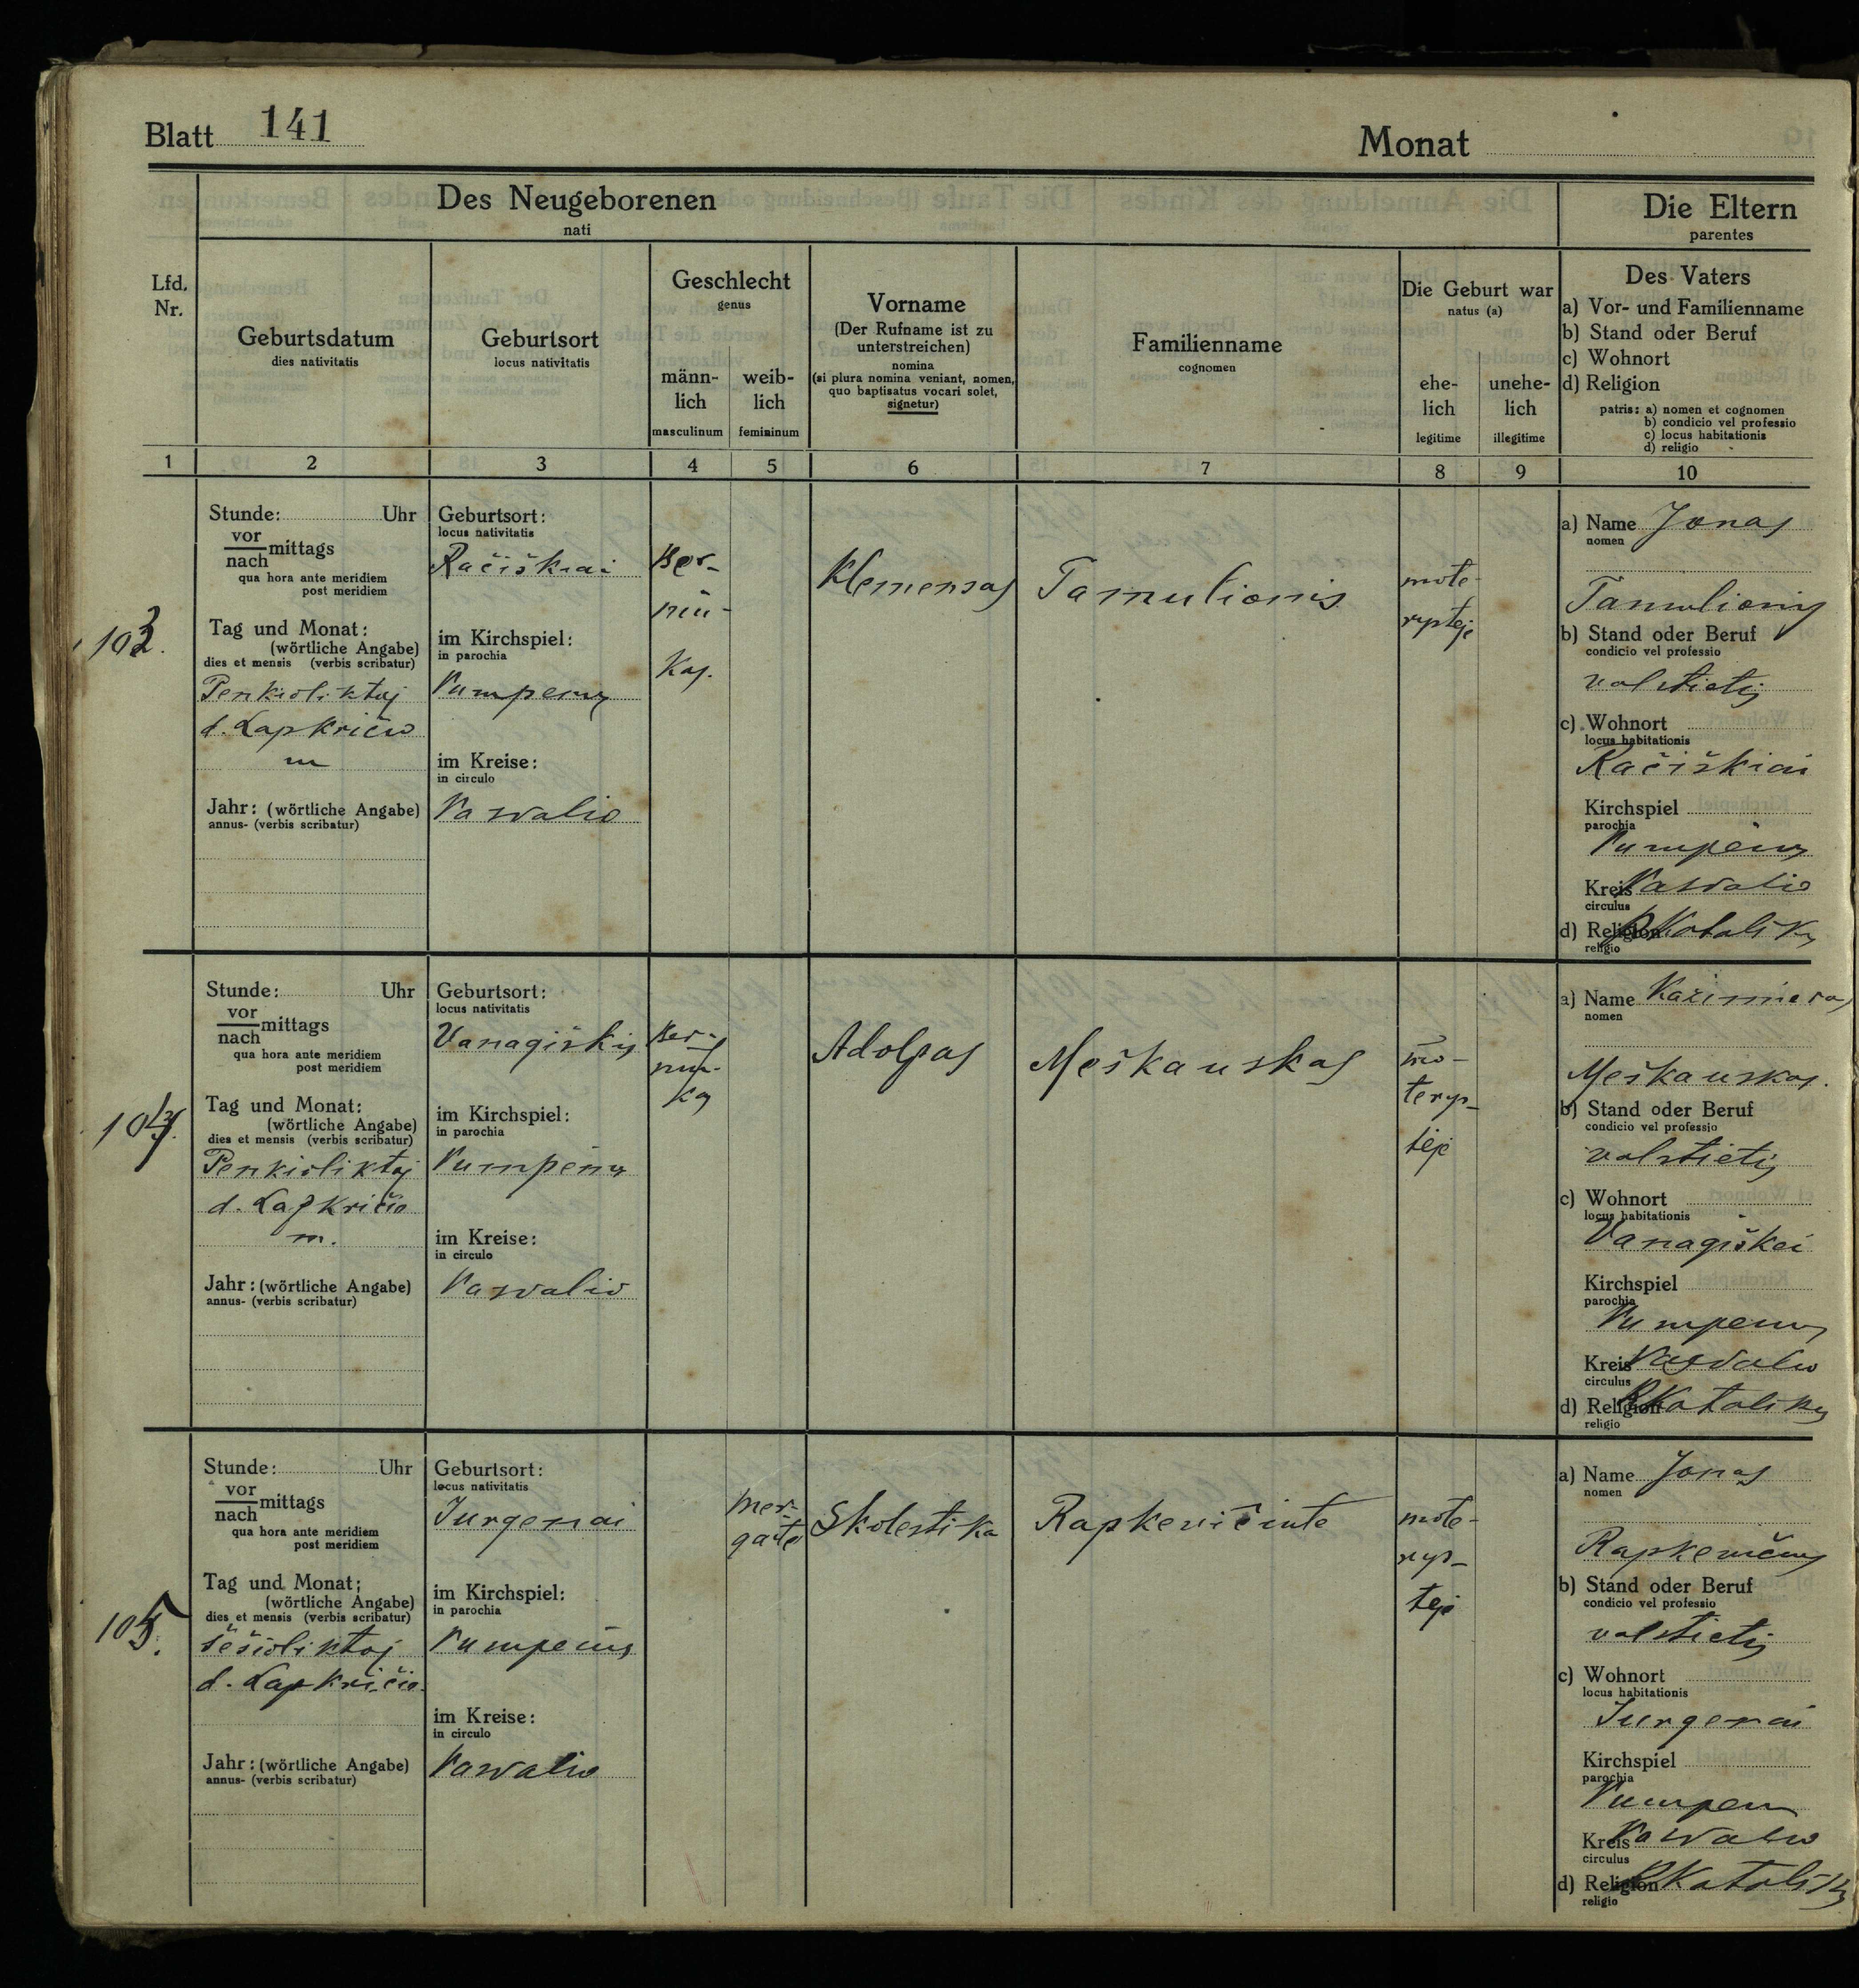 Blatt 141
Monat
Des Neugeborenen
nati
Die Eltern
parentes
Lfd. Nr.
Geburtsdatum
dies nativitatis
Geburtsort
locus nativitatis
Geschlecht
genus
männ-
lich
masculinum
weib-
lich
femininum
Vorname
(Der Rufname ist zu
unterstreichen)
nomina
(si plura nomina veniant, nomen,
quo baptisatus vocari solet,
signetur)
Familienname
cognomen
Die Geburt war
natus (a)
ehe-
lich
legitime
unehe-
lich
illegitime
Des Vaters
a) Vor- und Familienname
b) Stand oder Beruf
c) Wohnort
d) Religion
patris: a) nomen et cognomen
b) condicio vel professio
c) locus habitationis
d) religio
1 2 3 4 5 6 7 8 9 10
103.
Stunde: Uhr
vor
nach mittags
qua hora ante meridiem
post meridiem
Tag und Monat:
(wörtliche Angabe)
dies et mensis (verbis scribatur)
Penkioliktaj
d. Lapkričio
m
Jahr: (wörtliche Angabe)
annus- (verbis scribatur)
Geburtsort:
locus nativitatis
Račiškiai
im Kirchspiel:
in parochia
Pumpėnų
im Kreise:
in circulo
Pasvalio
Ber-
niu-
kas.
Klemensas
Tamulionis
mote-
rystėje
a) Name Jonas
nomen
Tamulionis
b) Stand oder Beruf
condicio vel professio
valstietis
c) Wohnort
locus habitationis
Račiškiai
Kirchspiel
parochia
Pumpėnų
Kreis Pasvalio
circulus
d) Religion R Katalikų
religio
104.
Stunde: Uhr
vor
nach mittags
qua hora ante meridiem
post meridiem
Tag und Monat:
(wörtliche Angabe)
dies et mensis (verbis scribatur)
Penkioliktaj
d. Lapkričio
m.
Jahr: (wörtliche Angabe)
annus- (verbis scribatur)
Geburtsort:
locus nativitatis
im Kirchspiel:
in parochia
Pumpėnų
im Kreise:
in circulo
Pasvalio
Ber-
niu-
kas
Adolpas
Meškauskas
mo-
terys-
tėje
a) Name Kazimieras
nomen
Meškauskas.
b) Stand oder Beruf
condicio vel professio
valstietis
c) Wohnort
locus habitationis
Vanagiškei
Kirchspiel
parochia
Pumpenų
Kreis Pasvalio
circulus
d) Religion R Katalikų
religio
105.
Stunde: Uhr
vor
nach mittags
qua hora ante meridiem
post meridiem
Tag und Monat;
(wörtliche Angabe)
dies et mensis (verbis scribatur)
šešioliktaj
d. Lapkričio
Jahr: (wörtliche Angabe)
annus- (verbis scribatur)
Geburtsort:
locus nativitatis
Jurgenai
im Kirchspiel:
in parochia
Pumpėnų
im Kreise:
in circulo
Pasvalio
mer-
gaitė
Skolestika
Rapkevičiute
mote-
rys-
tėje
a) Name Jonas
nomen
Rapkevičius
b) Stand oder Beruf
condicio vel professio
valstietis
c) Wohnort
locus habitationis
Jurgenai
Kirchspiel
parochia
Pumpenų
Kreis Pasvalio
circulus
d) Religion R Katalikų
religio